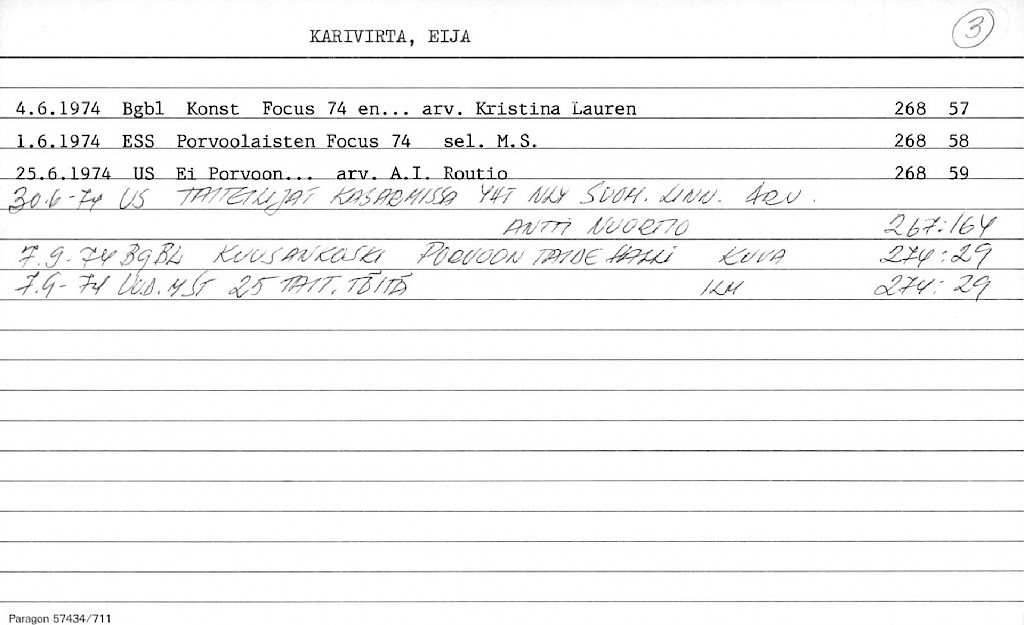 KARIVIRTA, EIJA 3
4.6.1974 Bgbl Konst Focus 74 en... arv. Kristina Lauren 268 57
1.6.1974 ESS Porvoolaisten Focus 74 sel. M.S. 268 58
25.6.1974 US Ei Porvoon... arv. A.I. Routio 268 59
30.6-74 US TAITEILIJAT KASARMISSA YHT NÄY SUOM. LINN. ARV.
ANTTI NUORTIO 267:164
7.9.-74 BgBL KUUSANKOSKI PORVOON TAIDEHALLI KUVA 274:29
7.9-74 UUD.MST 25 TAIT. TÖITÄ ILM 274:29
Paragon 57434/711